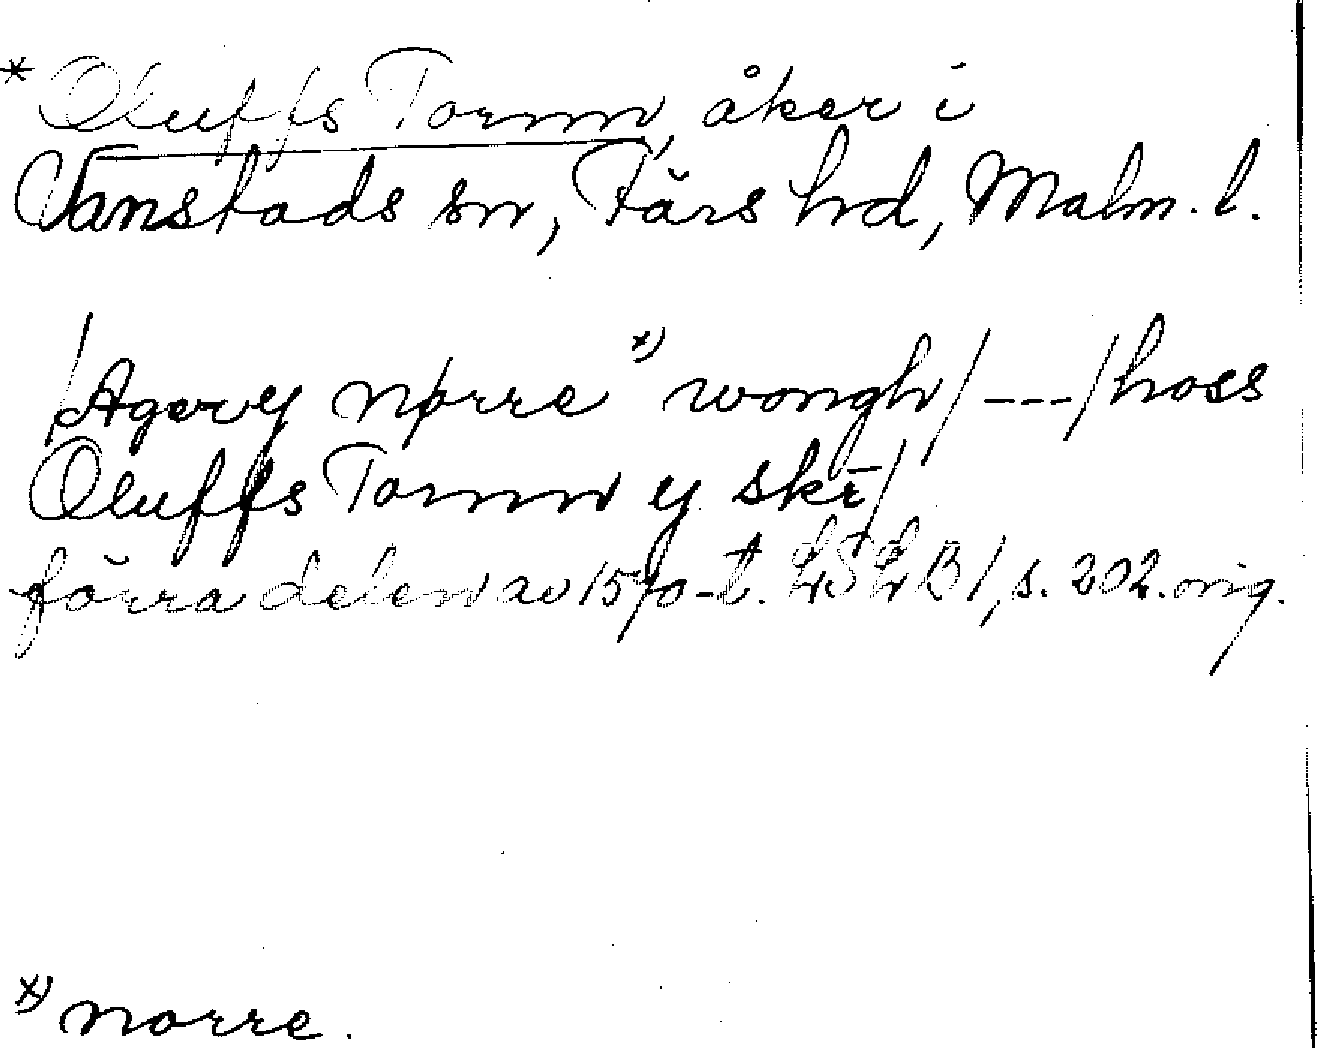 * Oluffs Tornn, åker i
Vanstads sn, Färs hd, Malm. l.
/Agery nørre *) wongh/---/hoss
Oluffs Tornn y skī/
förra delen av 1570-t. LSLB 1, s. 202. orig.
*) norre.